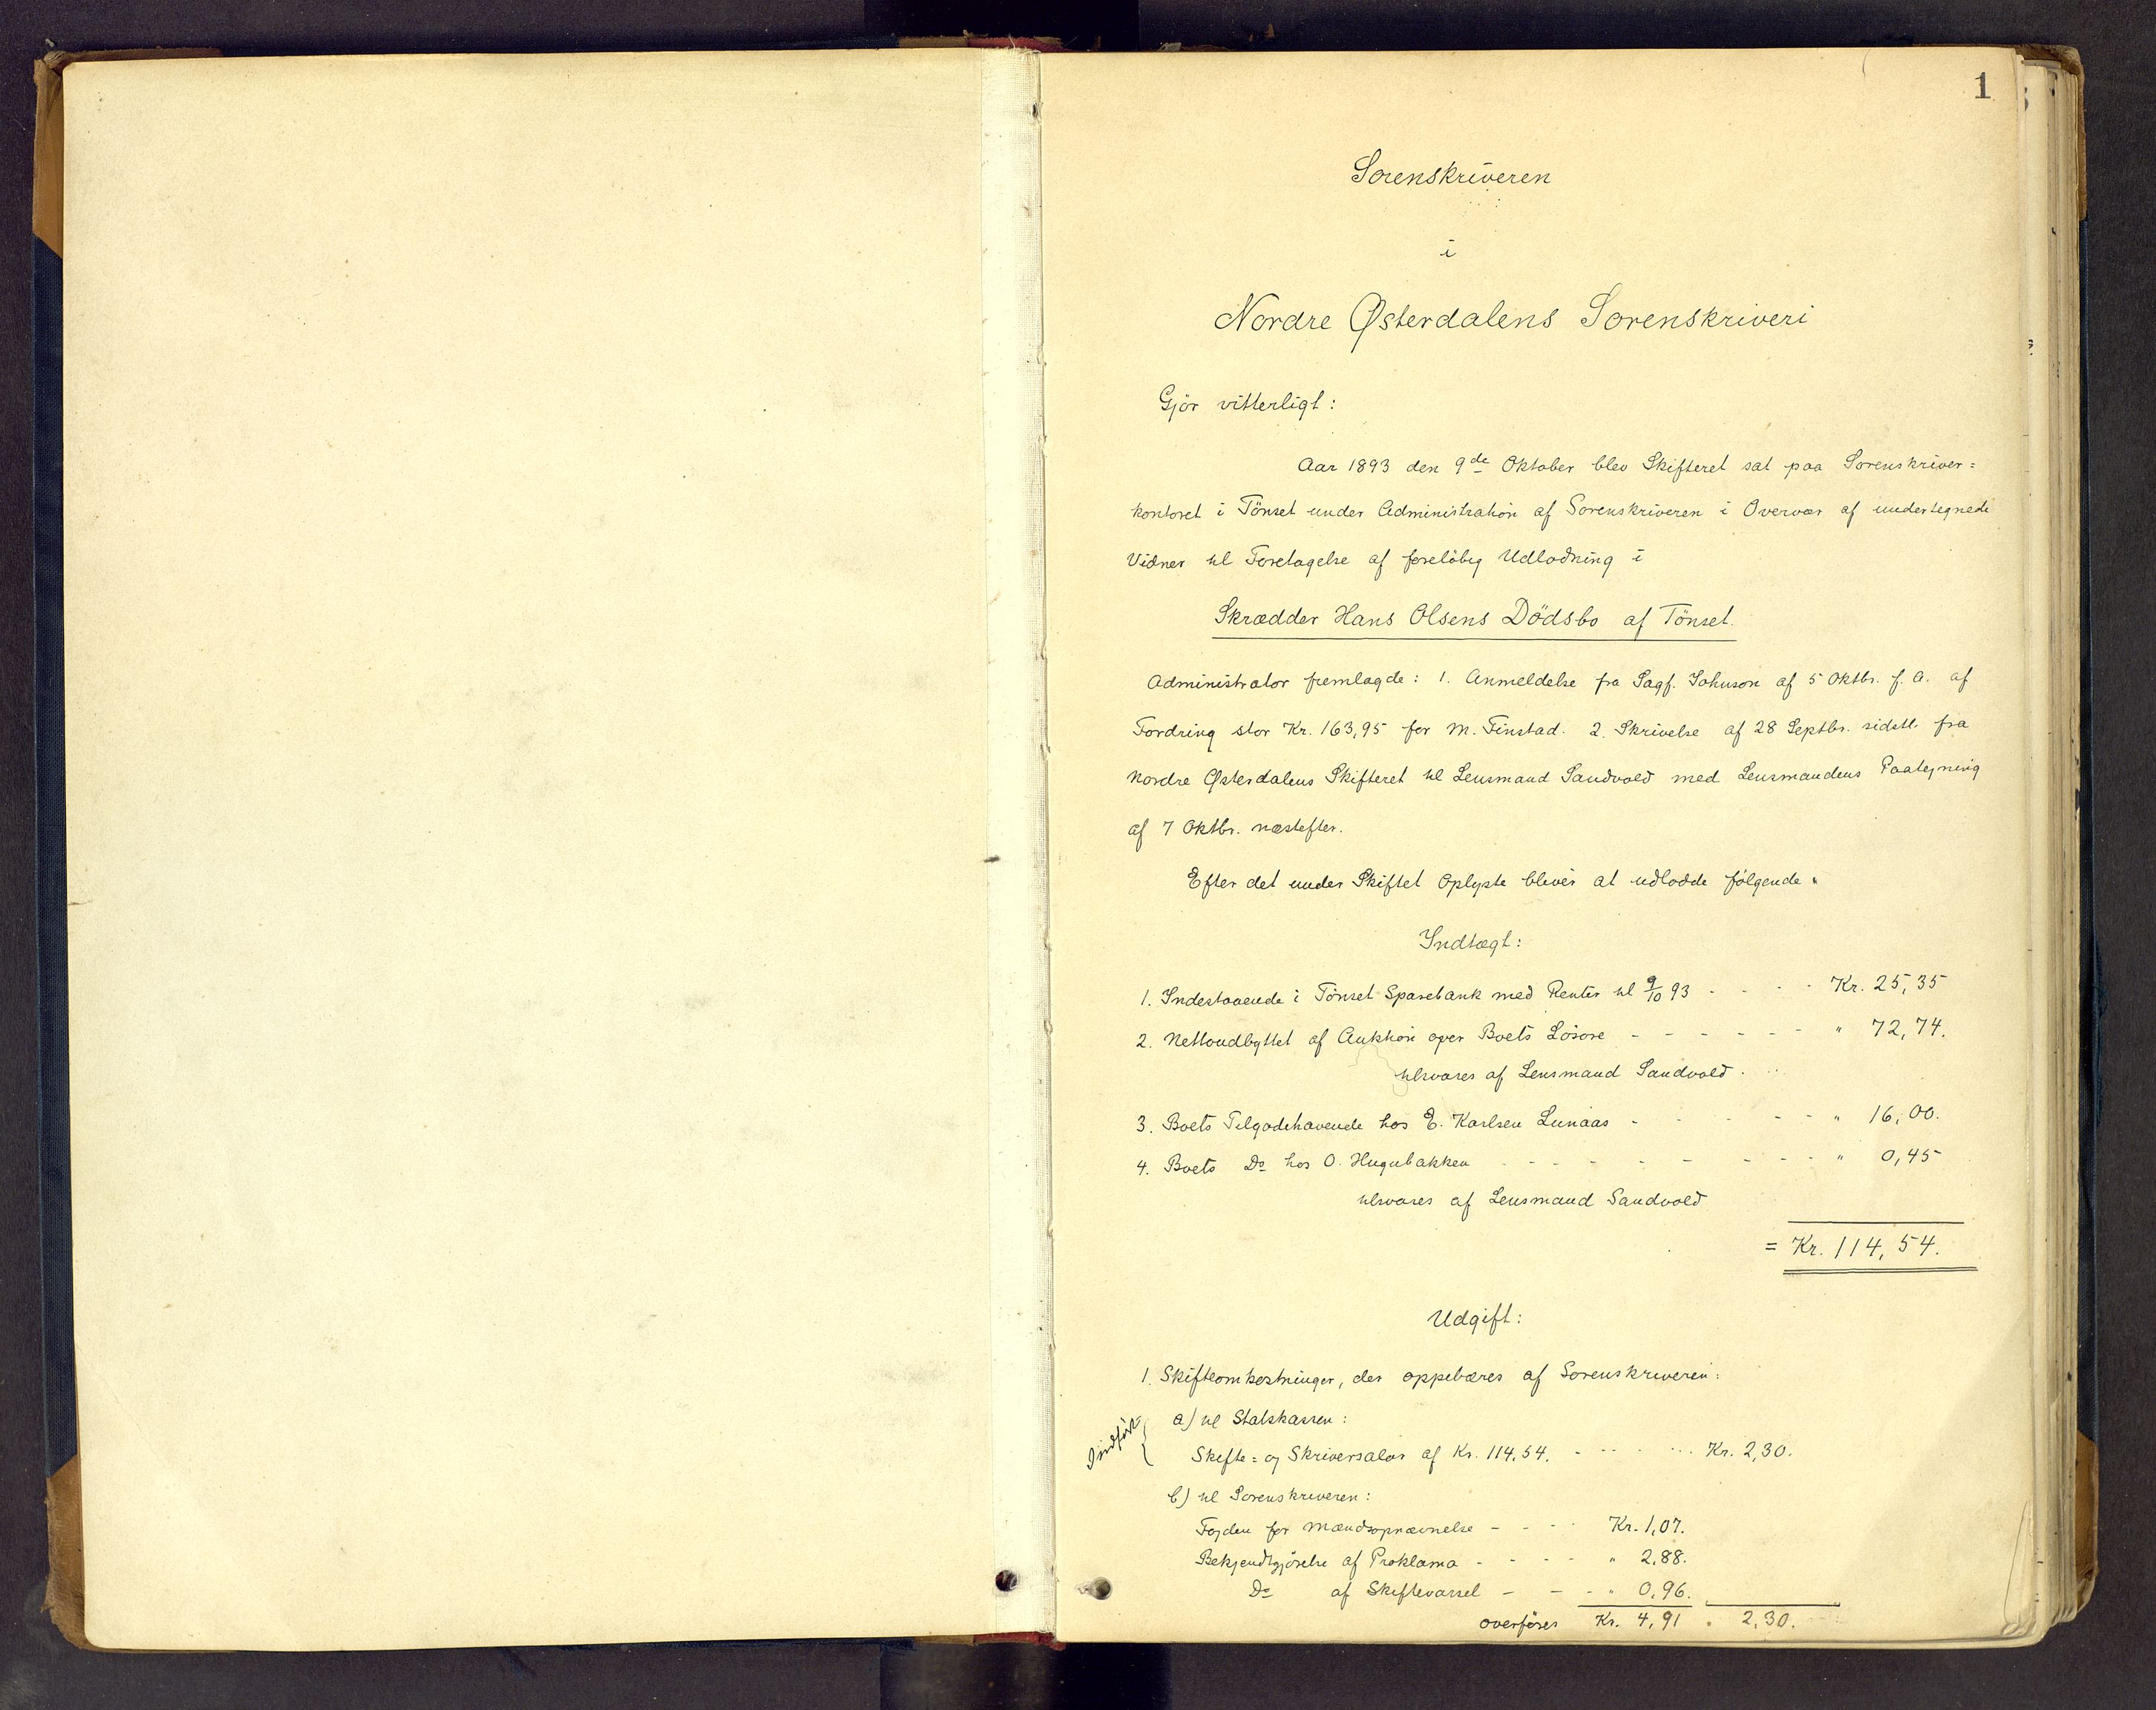 1
Sorenskriveren
i
Nordre Østerdalens Sorenskriveri
Gjör vitterligt:
Aar 1893 den 9de Oktober blev Skifteret sat paa Sorenskriver=
kontoret i Tönset under Administration af Sorenskriveren i Overvær af undertegnede
Vidner til Foretagelse af foreløbig Udlodning i
Skrædder Hans Olsens Dödsbo af Tönset.
Administrator fremlagde: 1. Anmeldelse fra Sagf. Johnson af 5 Oktbr. f. A. af
Fordring stor Kr. 163,95 for M. Finstad. 2. Skrivelse af 28 Septbr. sidstl. fra
Nordre Østerdalens Skifteret til Lensmand Sandvold med Lensmandens Paategning
af 7 Oktbr. næstefter.
Efter det under Skiftet Oplyste bliver at udlodde følgende.
Indtægt:
1. Indestaaende i Tönset Sparebank med Renter til 9/10 93 - - - - Kr. 25,35
2. Nettoudbyttet af Auktion over Boets Lösöre - - - - - - - " 72,74.
tilsvares af Lensmand Sandvold.
3. Boets Tilgodehavende hos E. Karlsen Lunaas - - - - - - " 16,00.
4. Boets Do hos O. Hugubakken - - - - - - - - - " 0,45
tilsvares af Lensmand Sandvold
= Kr. 114,54.
Udgift:
1. Skifteomkostninger, der oppebæres af Sorenskriveren:
a) til Statskassen:
Indført {
Skifte= og Skriversalær af Kr. 114,54. - - - - Kr. 2,30.
b) til Sorenskriveren:
Fogden for Mændsopnævnelse - - - - Kr. 1,07.
Bekjendtgjörelse af Proklama - - - - " 2,88.
Do af Skiftevarsel - - - " 0,96.
overföres Kr. 4,91 " 2,30.